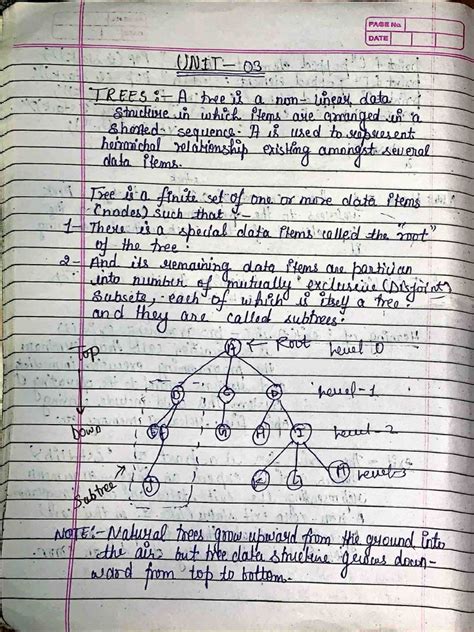 PAGE No.
DATE
UNIT - 03
TREES :- A tree is a non-linear data
structure in which items are arranged in a
shorted sequence. It is used to represent
heirarichal relationship existing amongst several
data items.
Tree is a finite set of one or more data items
(nodes) such that :-
1- There is a special data items called the "root"
of the tree.
2- And its remaining data items are partician
into number of mutually exclusive (Disjoint)
Subsets, each of which is itself a tree.
and they are called subtrees.
Top
A ← Root Level 0
C D Level-1
Down
G H I Level-2
J K L M Level-3
Subtree
NOTE:- Natural trees grow upward from the ground into
the air, but tree data structure grows down-
ward from top to bottom.